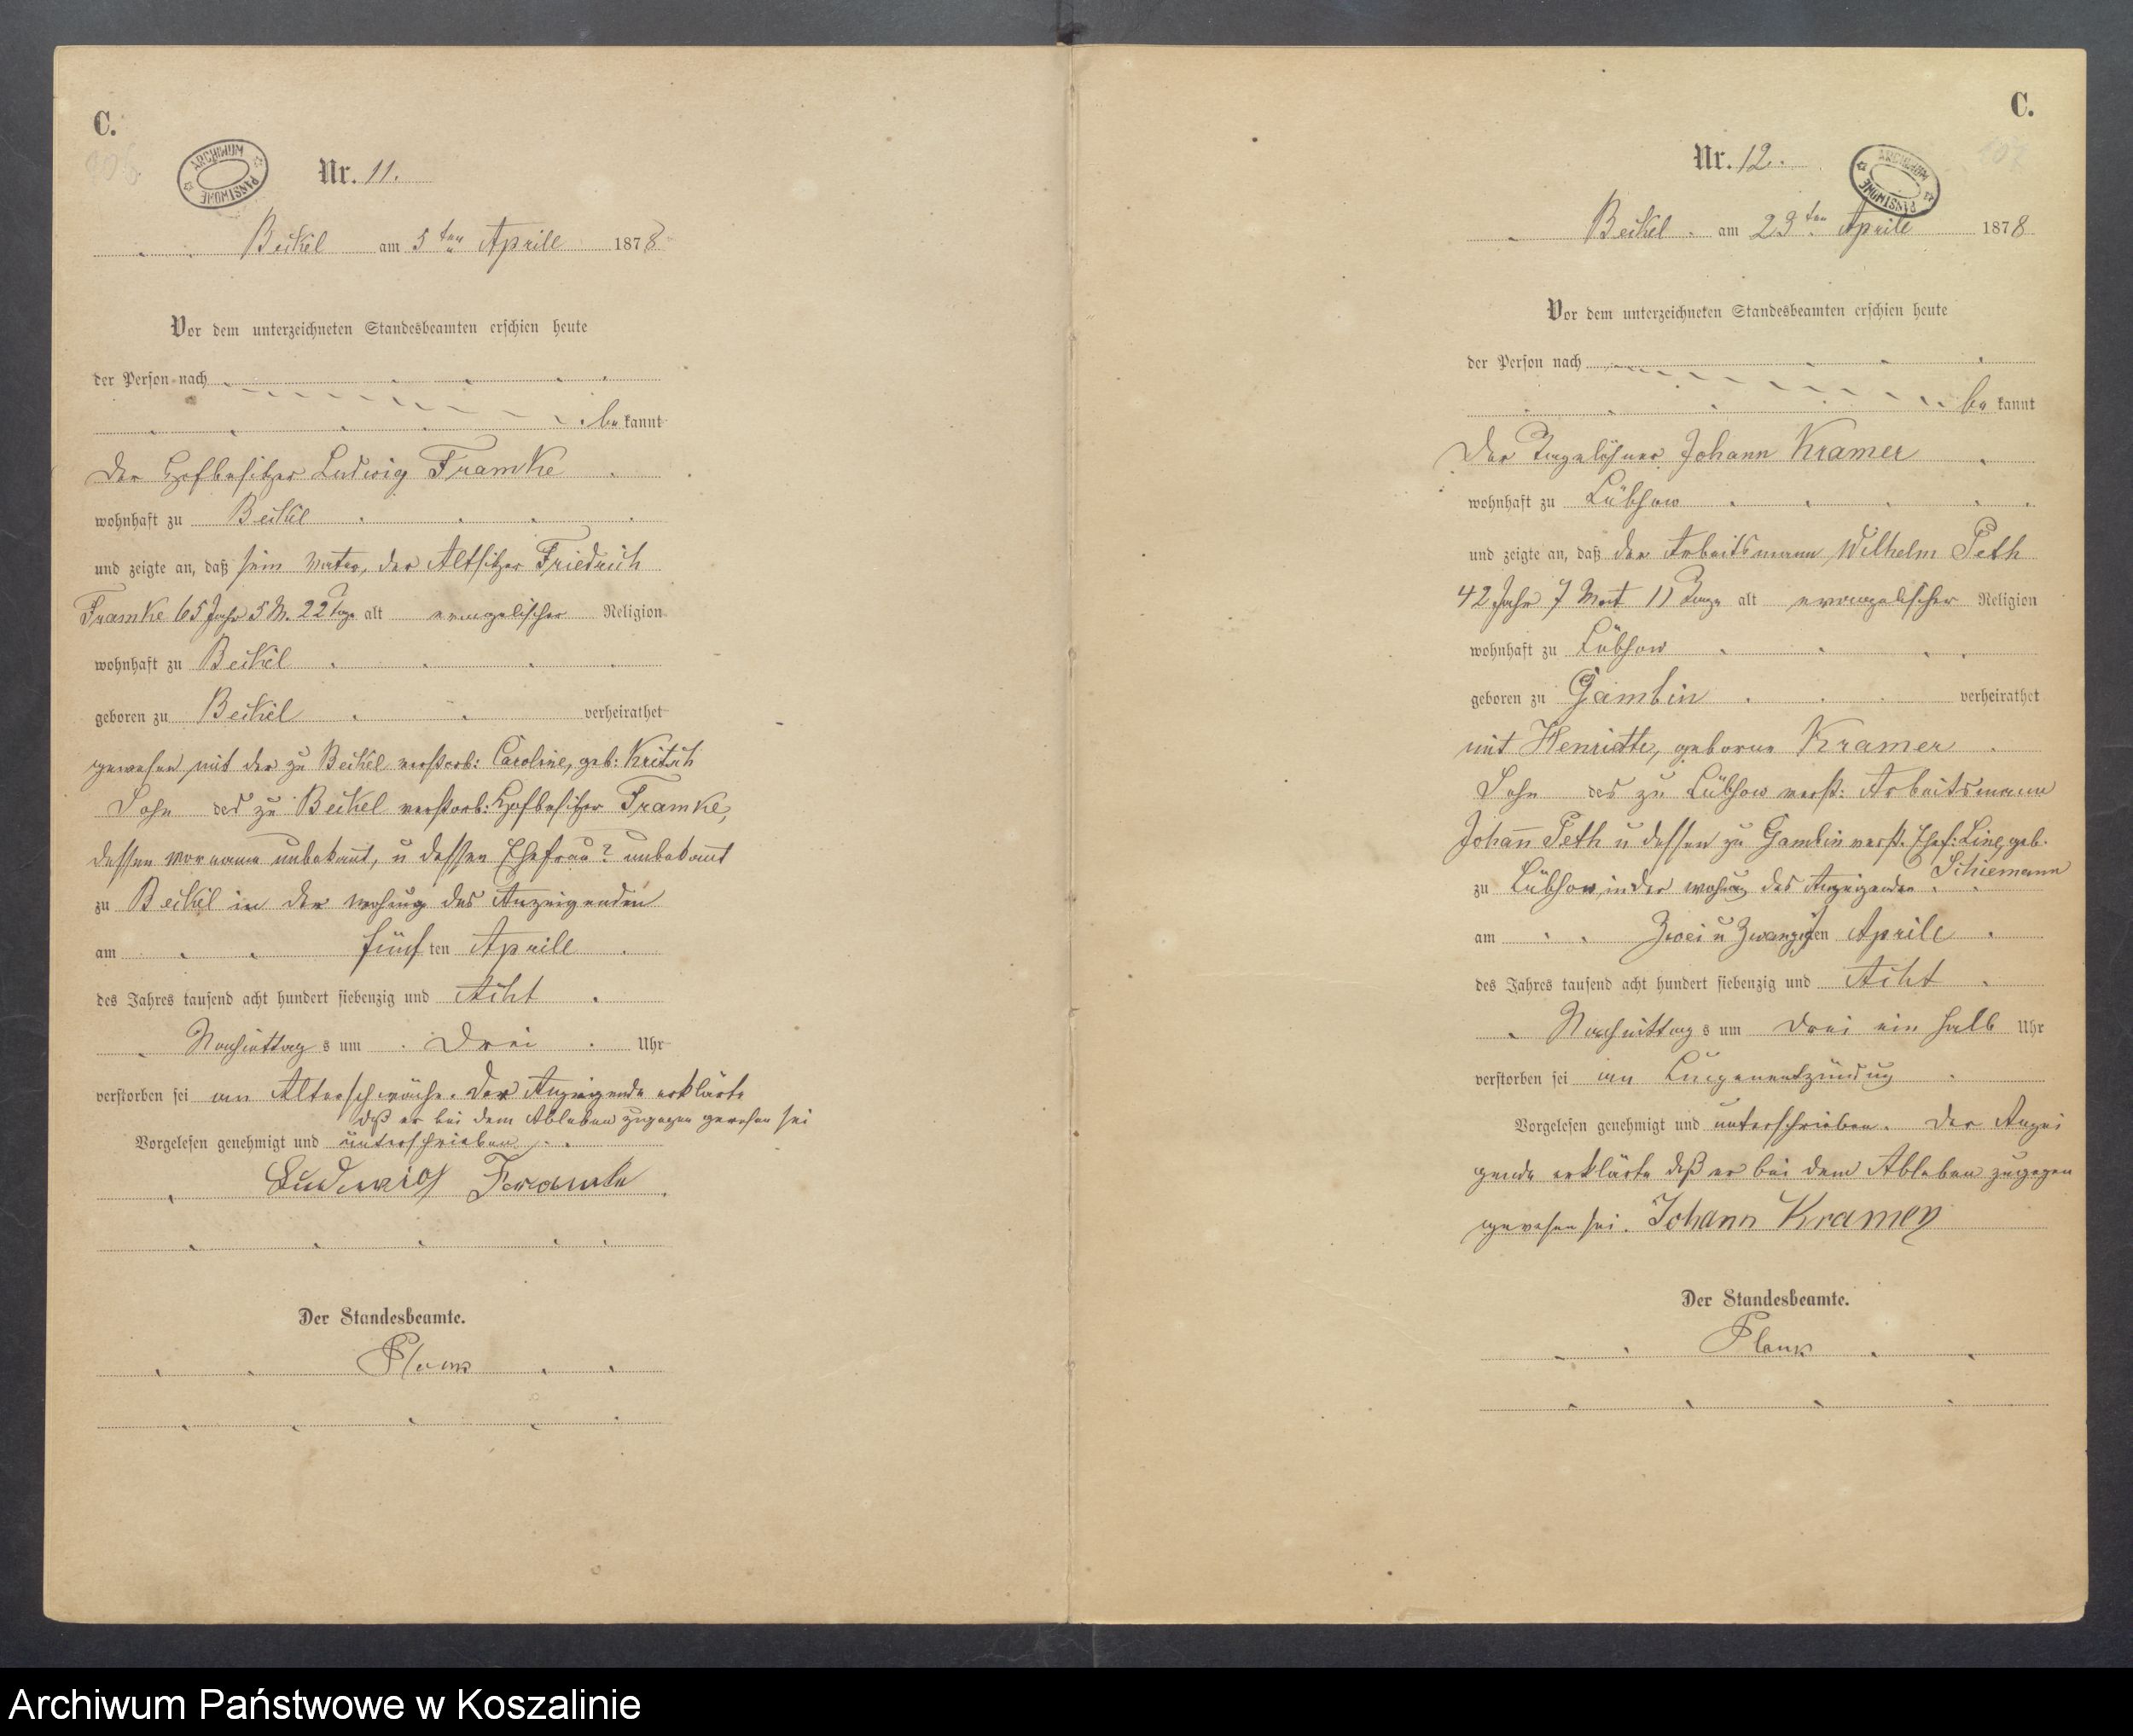 C.
ARCHIWUM PAŃSTWOWE
Nr. 11.
Beckel am 5ten Aprill 1878
Vor dem unterzeichneten Standesbeamten erschien heute
der Person nach
bekannt
Der Hofbesitzer Ludwig Framke
wohnhaft zu Beckel
und zeigte an, daß sein Vater, der Altsitzer Friedrich
Framke 65 Jahr 5 M. 22 Tage alt evangelischer Religion
wohnhaft zu Beckel
geboren zu Beckel verheirathet
gewesen mit der zu Beckel verstorb: Caroline, geb: Kritsch
Sohn des zu Beckel verstorb: Hofbesitzer Framke,
dessen Vorname unbekannt, u dessen Ehefrau? unbekannt
zu Beckel in der Wohnug des Anzeigenden
am fünften Aprill
des Jahres tausend acht hundert siebenzig und Acht
Nachmittags um Drei Uhr
verstorben sei an Alterschwäche. Der Anzeigende erklärte
daß er bei dem Ableben zugegen gewesen sei
Vorgelesen genehmigt und unterschrieben
Ludwig Framke
Der Standesbeamte.
Plank
C.
Nr. 12.
ARCHIWUM PAŃSTWOWE
Beckel am 23ten Aprill 1878
Vor dem unterzeichneten Standesbeamten erschien heute
der Person nach
bekannt
Der Tagelöhner Johann Kramer
wohnhaft zu Lübzow
und zeigte an, daß der Arbeitsmann Wilhelm Peth
42 Jahr 7 Mont 11 Tage alt evangelischer Religion
wohnhaft zu Lübzow
geboren zu Gambin verheirathet
mit Henriette, geborne Kramer
Sohn des zu Lübzow verst: Arbeitsmann
Johann Peth u dessen zu Gambin verst. Ehef: Line, geb.
Schiemann
zu Lübzow, in der Wohnug des Anzeigenden
am Zwei u Zwanzigsten Aprill
des Jahres tausend acht hundert siebenzig und Acht
Nachmittags um Drei ein halb Uhr
verstorben sei an Lungenentzündug
Vorgelesen genehmigt und unterschrieben. Der Anzei
gende erklärte daß er bei dem Ableben zugegen
gewesen sei. Johann Kramer
Der Standesbeamte.
Plank
Archiwum Państwowe w Koszalinie